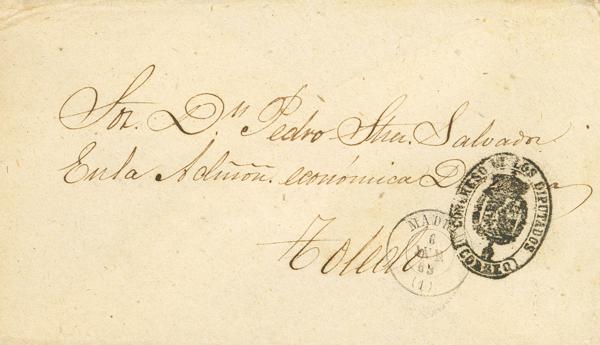 Sor. Dn. Pedro Salvador
En la Admón. económica D
Toledo
MADR
6
(1)
CONGRESO DE LOS DIPUTADOS
(CORREO)